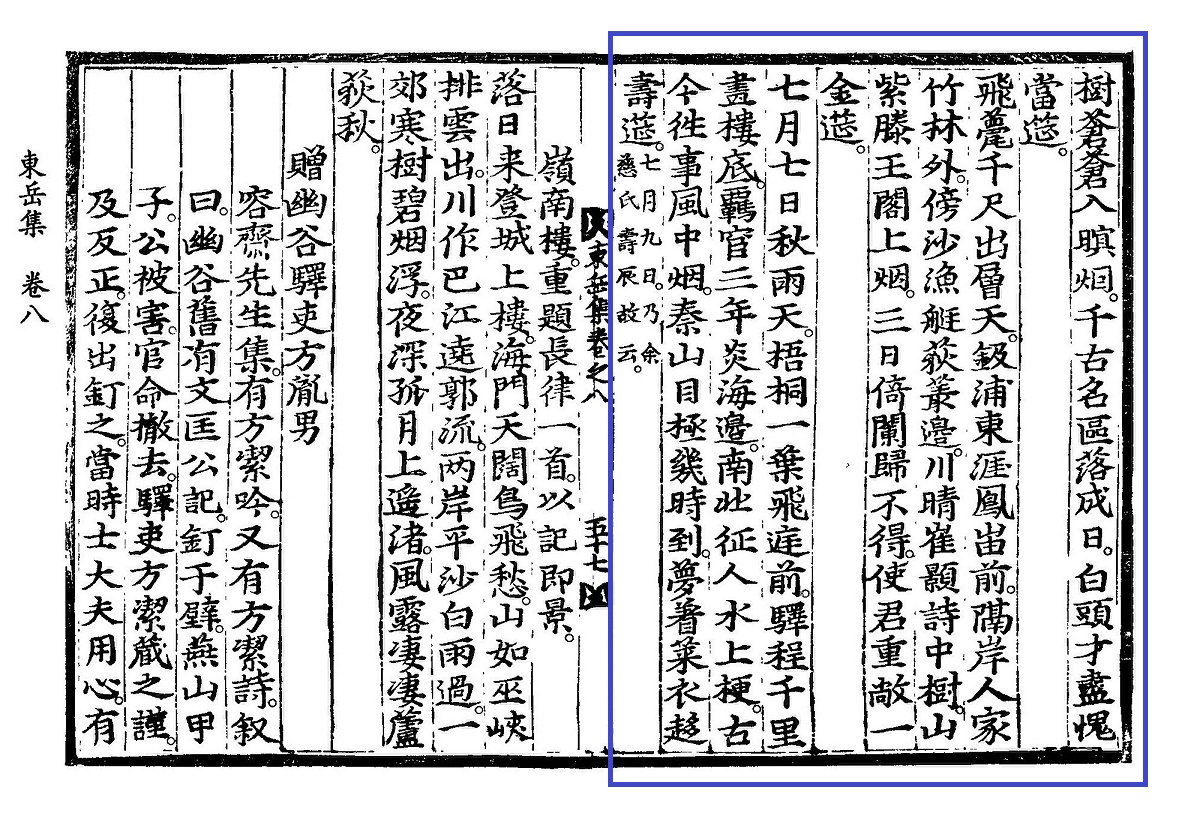 樹蒼蒼入暝烟。千古名區落成日。白頭才盡愧
當筵。
飛甍千尺出層天。鈒浦東涯鳳峀前。隔岸人家
竹林外。傍沙漁艇荻叢邊。川晴崔顥詩中樹。山
紫滕王閣上烟。三日倚闌歸不得。使君重敞一
金筵。
七月七日秋雨天。梧桐一葉飛庭前。驛程千里
畫樓底。羈官三年炎海邊。南北征人水上梗。古
今徃事風中烟。秦山目極幾時到。夢着萊衣趍
壽筵。七月九日。乃余
慈氏壽辰故云。
東岳集卷之八 五十七
嶺南樓。重題長律一首。以記即景。
落日来登城上樓。海門天闊鳥飛愁。山如巫峽
排雲出。川作巴江遶郭流。两岸平沙白雨過。一
郊寒樹碧烟浮。夜深孤月上遥渚。風露凄凄蘆
荻秋。
贈幽谷驛吏方胤男
容齋先生集。有方潔吟。又有方潔詩。叙
曰。幽谷舊有文匡公記。釘于壁。燕山甲
子。公被害。官命撤去。驛吏方潔藏之謹。
及反正。復出釘之。當時士大夫用心。有
東岳集 卷八